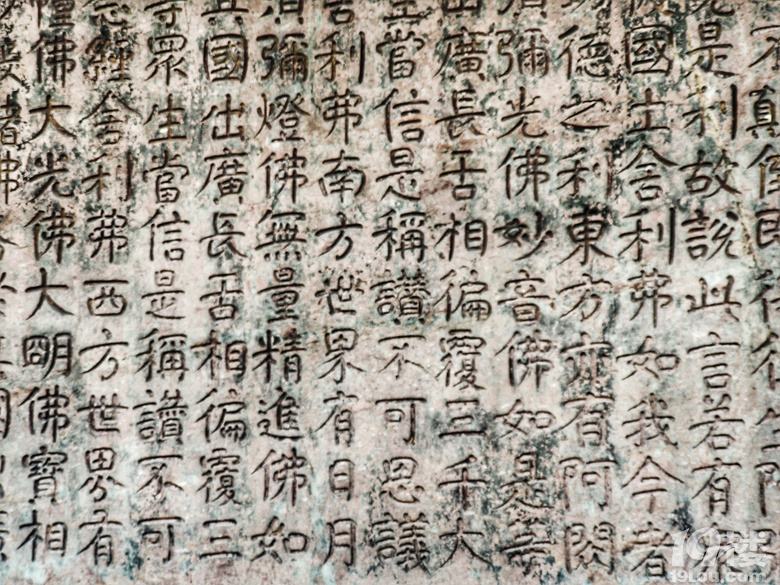 不顛倒即得往生阿
見是利故說此言若有
彼國土舍利弗如我今者
功德之利東方亦有阿閦
須彌光佛妙音佛如是等
出廣長舌相徧覆三千大
生當信是稱讚不可思議
舍利弗南方世界有日月
須彌燈佛無量精進佛如
其國出廣長舌相徧覆三
等眾生當信是稱讚不可
念經舍利弗西方世界有
幢佛大光佛大明佛寶相
19楼
19lou.com